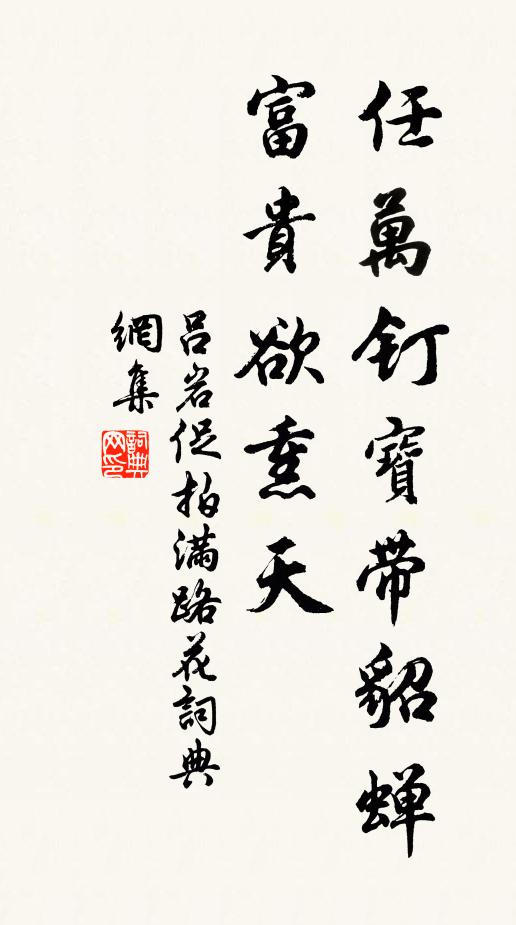 任萬釘寶帶貂蟬
富貴欲熏天
呂岩促拍滿路花詞典
網集
詞典
网印